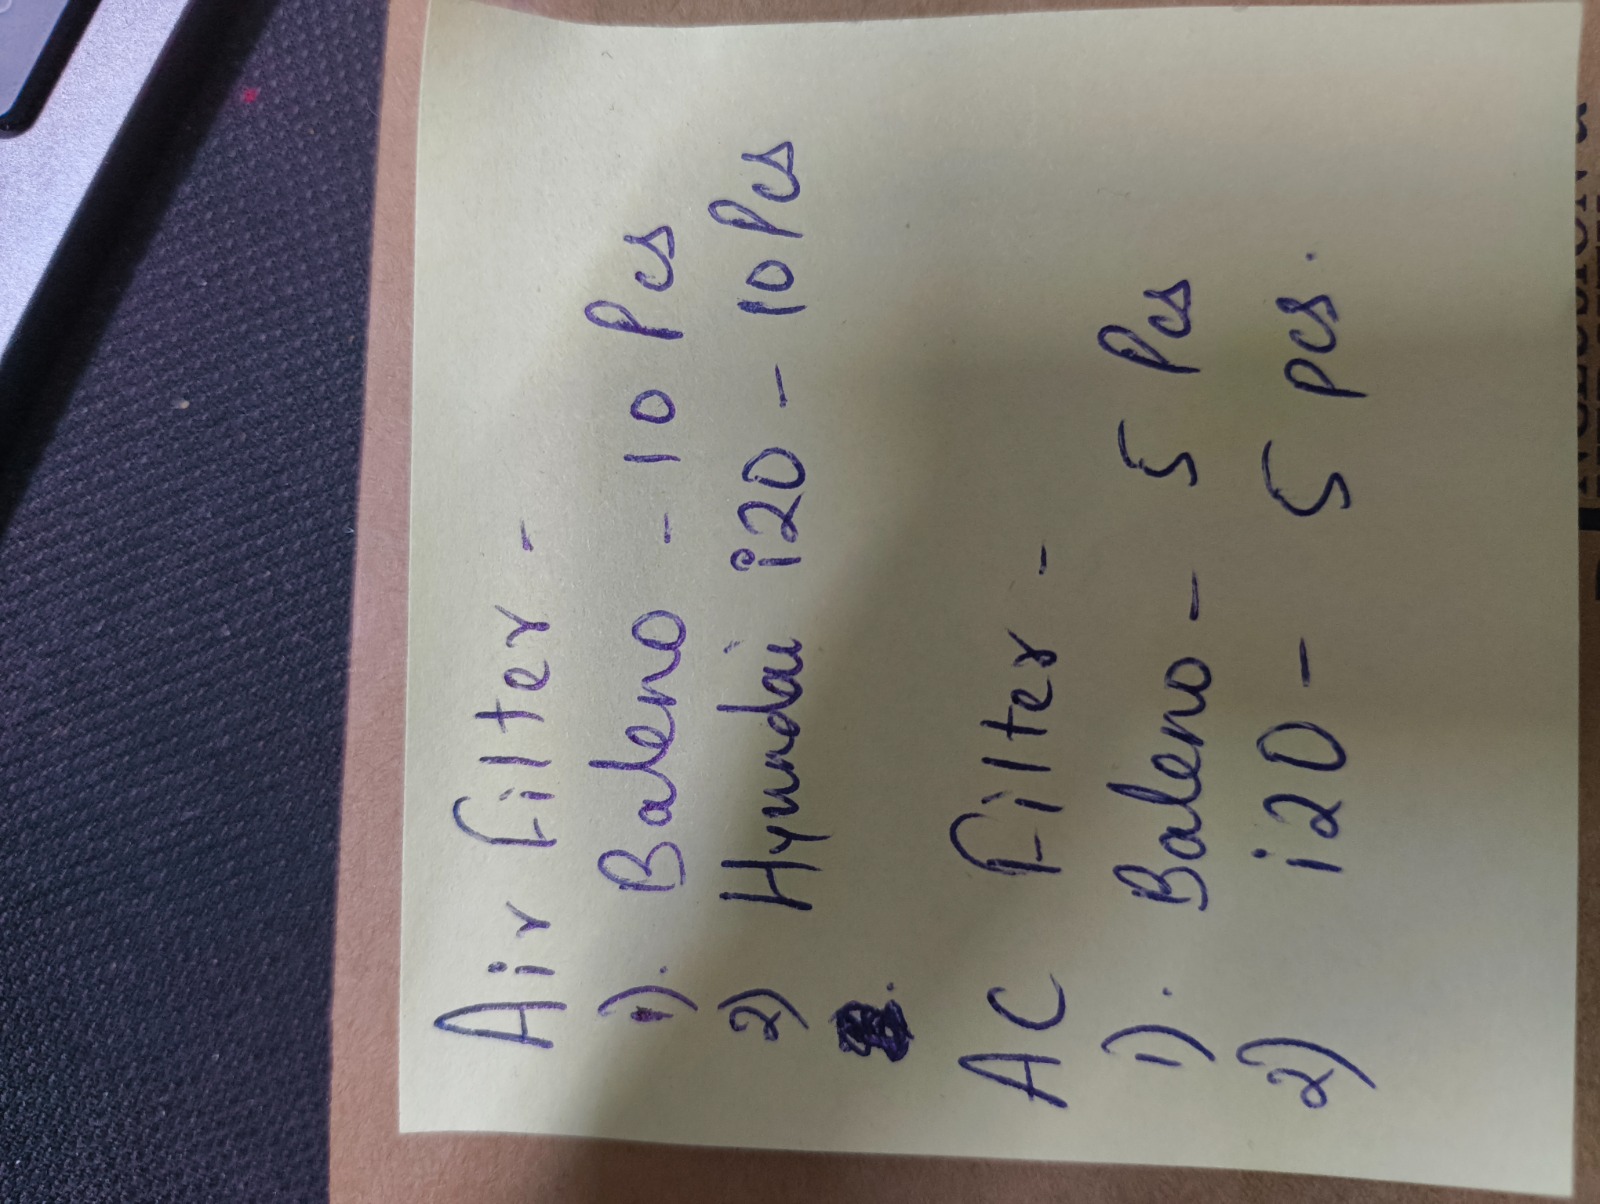 Air Filter -
1). Baleno - 10 Pcs
2) Hyundai i20 - 10 Pcs
AC Filter -
1). Baleno - 5 Pcs
2) i20 - 5 pcs.